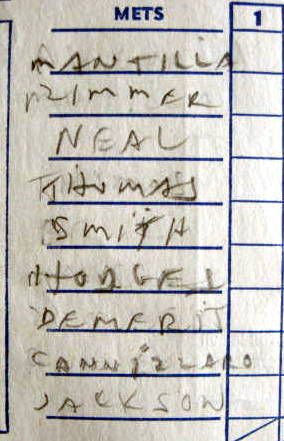 METS 1
MANTILLA
ZIMMER
NEAL
THOMAS
SMITH
HODGES
DEMERIT
CANNIZZARO
JACKSON